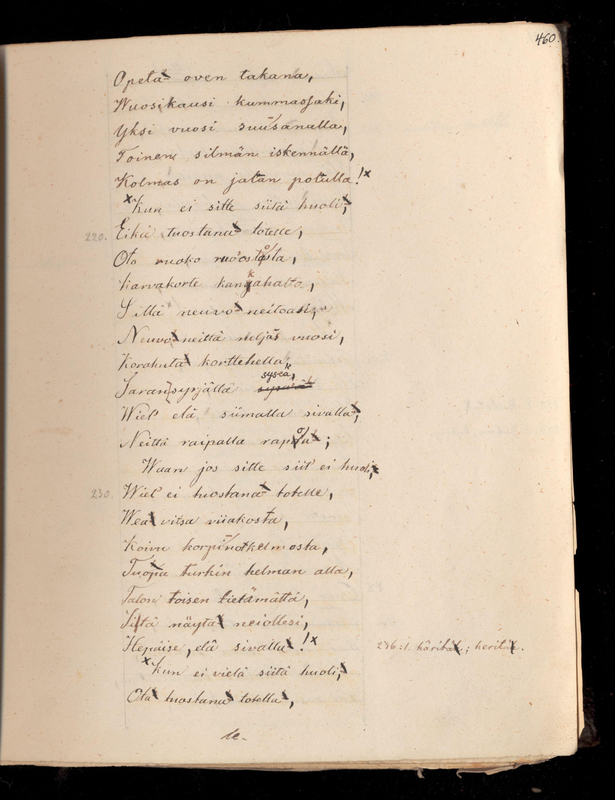 460.
Opeta oven takana,
Wuosikausi kummassaki,
Yksi vuosi suusanalla,
Toinen silmän iskennällä,
Kolmas on jalan polulla!
Kun ei sitte siitä huoli,
220. Eikä tuostana totelle,
Ota ruoko ruostosta,
Karvakorte kankahalta,
Sillä neuvo neitoasi,
Neuvo neittä neljäs vuosi,
Korahuta kortehella,
Saran syrjällä syseä,
Wiel' elä siimalla sivalla,
Neittä raipalla rapoa;
Waan jos sitte siit' ei huoli,
230. Wiel' ei tuostana totelle,
Wea vitsa viiakosta,
Koivu korpinotkelmosta,
Tuopa turkin helman alla,
Talon toisen tietämättä,
Sitä näytä neiollesi,
Hepäise, elä sivalla!
236:1. häritä; heritä.
Kun ei vielä siitä huoli,
Ota tuostana totella,